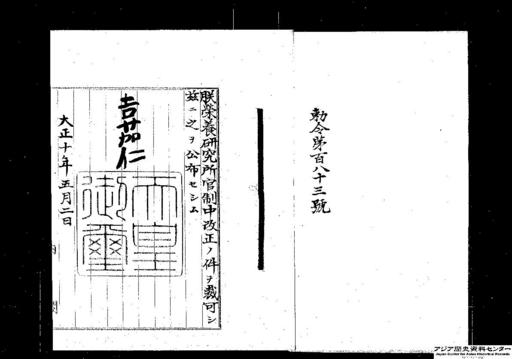 勅令第百八十三號
朕榮養研究所官制中改正ノ件ヲ裁可シ
玆ニ之ヲ公布セシム
嘉仁
天皇
御璽
大正十年五月二日
内閣
アジア歴史資料センター
Japan Center for Asian Historical Records